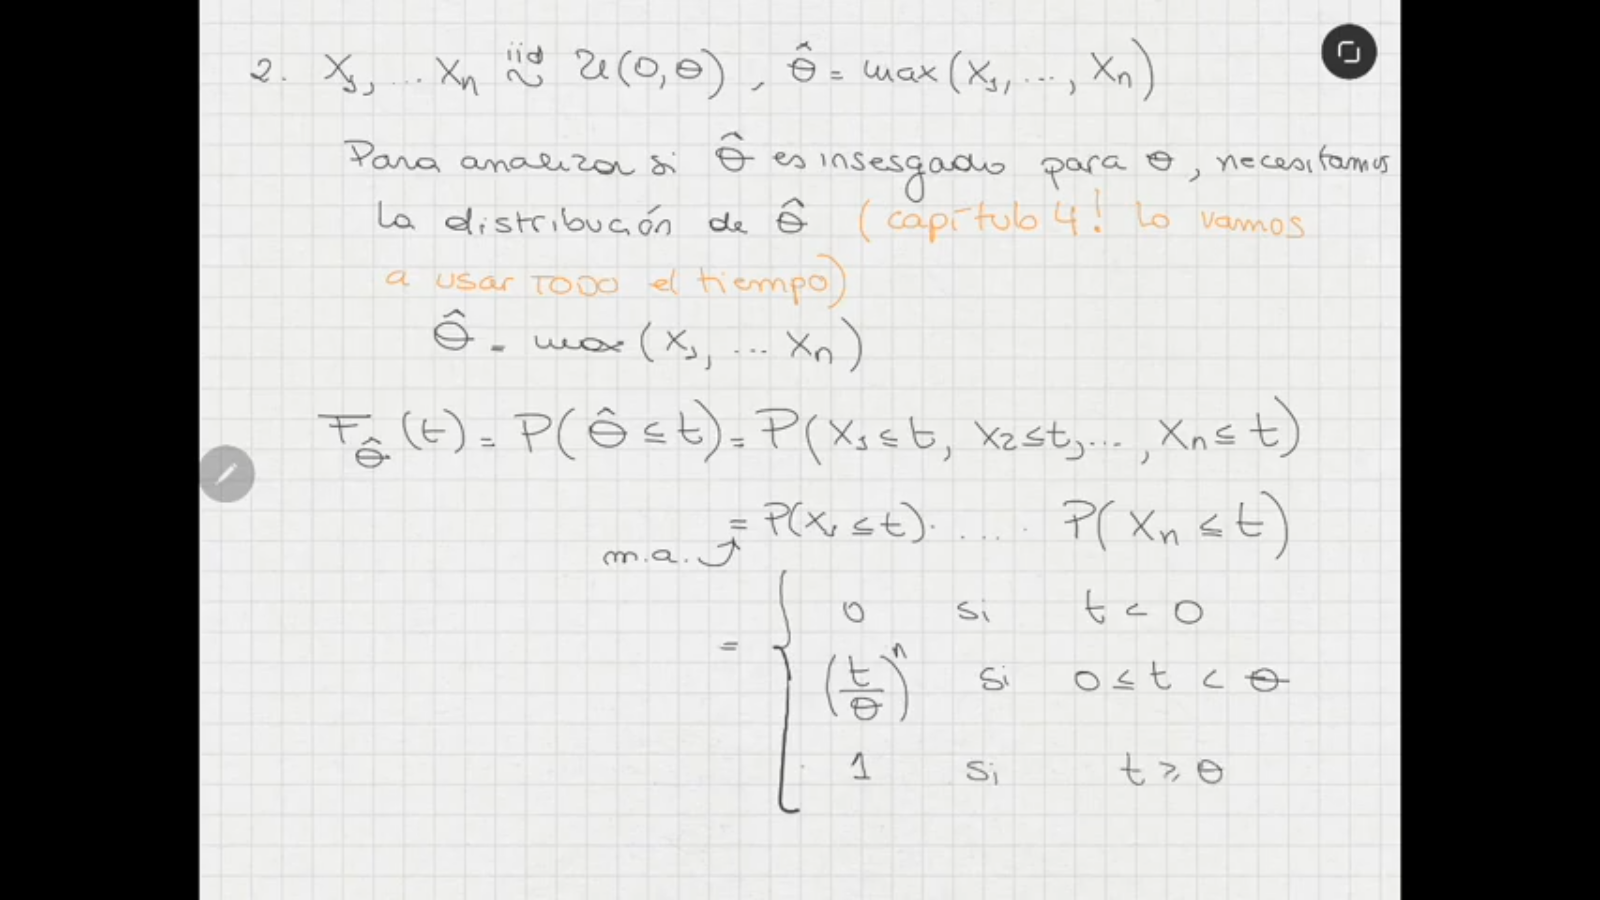 2. X₁, ... Xₙ iid ~ U(0, θ), θ̂ = max(X₁, ..., Xₙ)
Para analizar si θ̂ es insesgado para θ, necesitamos
la distribución de θ̂ (capítulo 4! Lo vamos
a usar TODO el tiempo)
θ̂ = max(X₁, ... Xₙ)
F_θ̂(t) = P(θ̂ ≤ t) = P(X₁ ≤ t, X₂ ≤ t, ..., Xₙ ≤ t)
= P(X₁ ≤ t) · .... P(Xₙ ≤ t)
m.a.
= { 0 si t < 0
(t/θ)ⁿ si 0 ≤ t < θ
1 si t ≥ θ